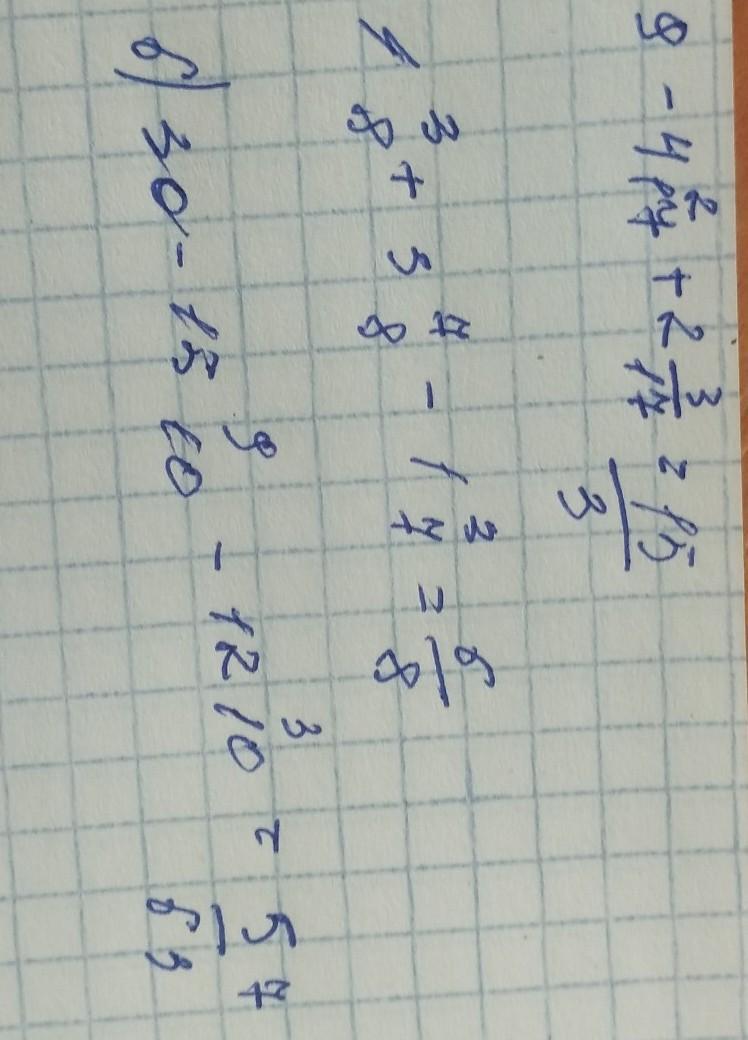 9 - 4 2/17 + 2 3/17 = 15/3
1 3/8 + 5 7/8 - 1 3/7 = б/8
б) 30 - 15 9/10 - 12 3/10 = 57/б3